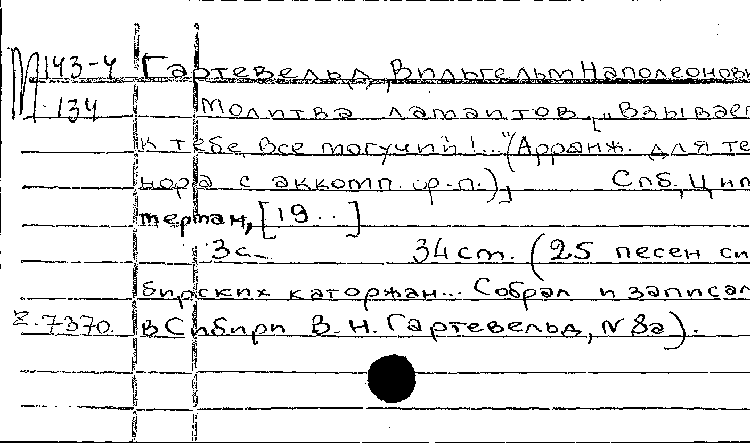 М143-4 Гартевельд, Вильгельм Наполеонови
134 Молитва ламаитов, [„Взывает
к тебе, все могучий!..." (Арранж. для те
нора с аккомп. ф.-п.)] Спб, Цим
мерман, [19..]
3 с. 34 cm. (25 песен си
бирских каторжан... Собрал и записал
Z.7370. в Сибири В. Н. Гартевельд, N 8а).